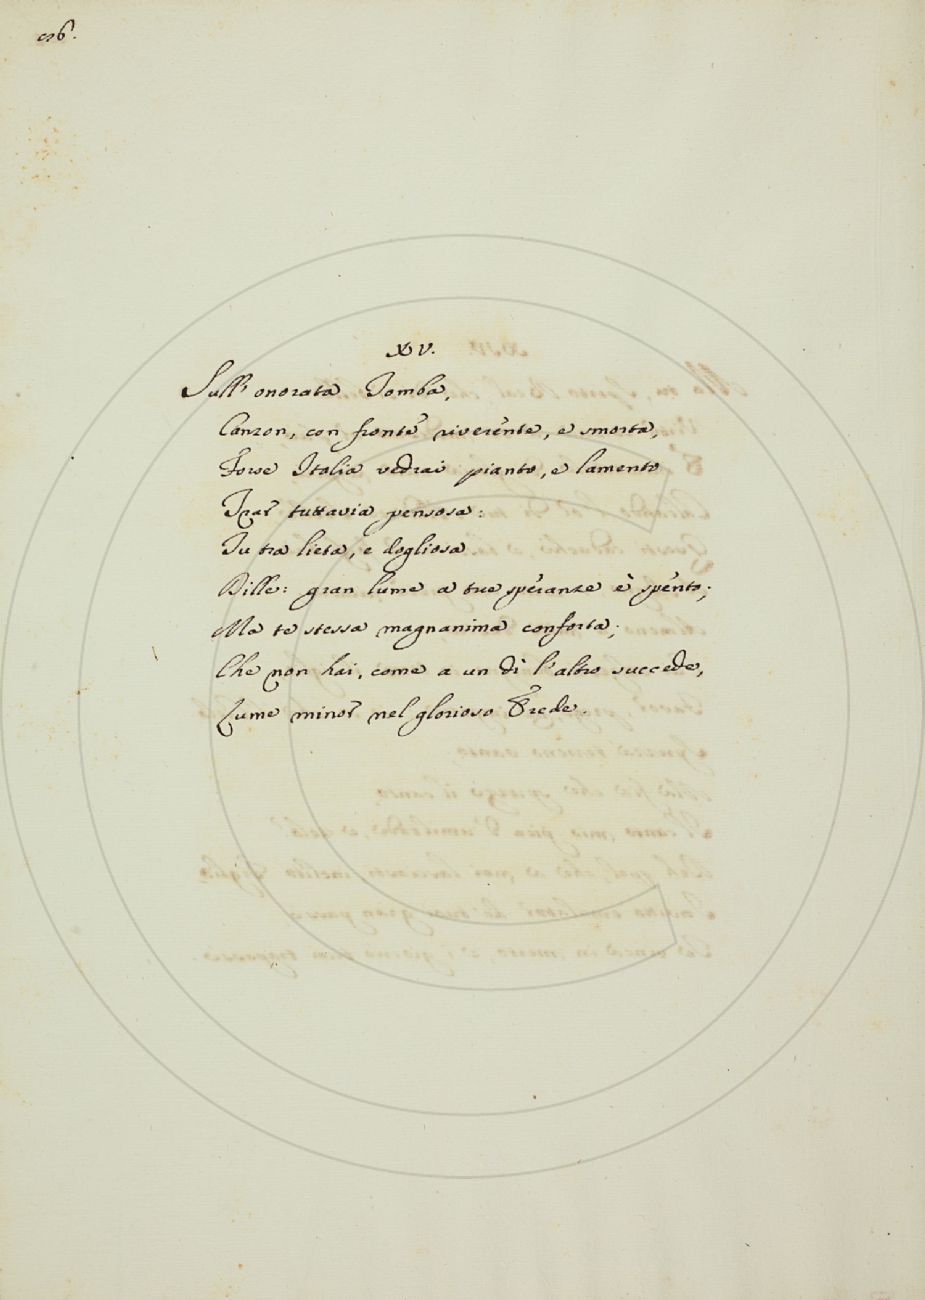 XV.
Sull' onorata Tomba,
Canzon, con fronte riverente, e smorta,
Forse Italia vedrai pianto, e lamento
Trar tuttavia pensosa:
Tu tra lieta, e dogliosa
Dille: gran lume a tue speranze è spento;
Ma te stessa magnanima conforta;
Che non hai, come a un dì l'altro succede,
Lume minor nel glorioso Erede.